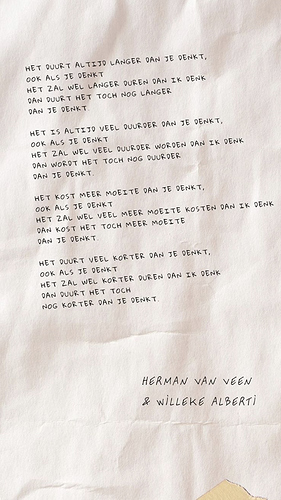 HET DUURT ALTIJD LANGER DAN JE DENKT,
OOK ALS JE DENKT
HET ZAL WEL LANGER DUREN DAN IK DENK
DAN DUURT HET TOCH NOG LANGER
DAN JE DENKT.
HET IS ALTIJD VEEL DUURDER DAN JE DENKT,
OOK ALS JE DENKT
HET ZAL WEL VEEL DUURDER WORDEN DAN IK DENK
DAN WORDT HET TOCH NOG DUURDER
DAN JE DENKT.
HET KOST MEER MOEITE DAN JE DENKT,
OOK ALS JE DENKT
HET ZAL WEL VEEL MEER MOEITE KOSTEN DAN IK DENK
DAN KOST HET TOCH MEER MOEITE
DAN JE DENKT
HET DUURT VEEL KORTER DAN JE DENKT,
OOK ALS JE DENKT
HET ZAL WEL KORTER DUREN DAN IK DENK
DAN DUURT HET TOCH
NOG KORTER DAN JE DENKT.
HERMAN VAN VEEN
& WILLEKE ALBERTI